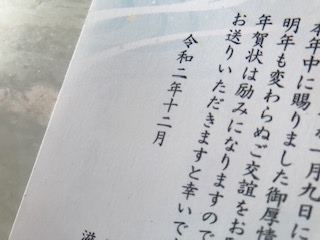 一月九日に
本年中に賜りました御厚情
明年も変わらぬご交誼をお
年賀状は励みになりますので
お送りいただきますと幸いで
令和二年十二月